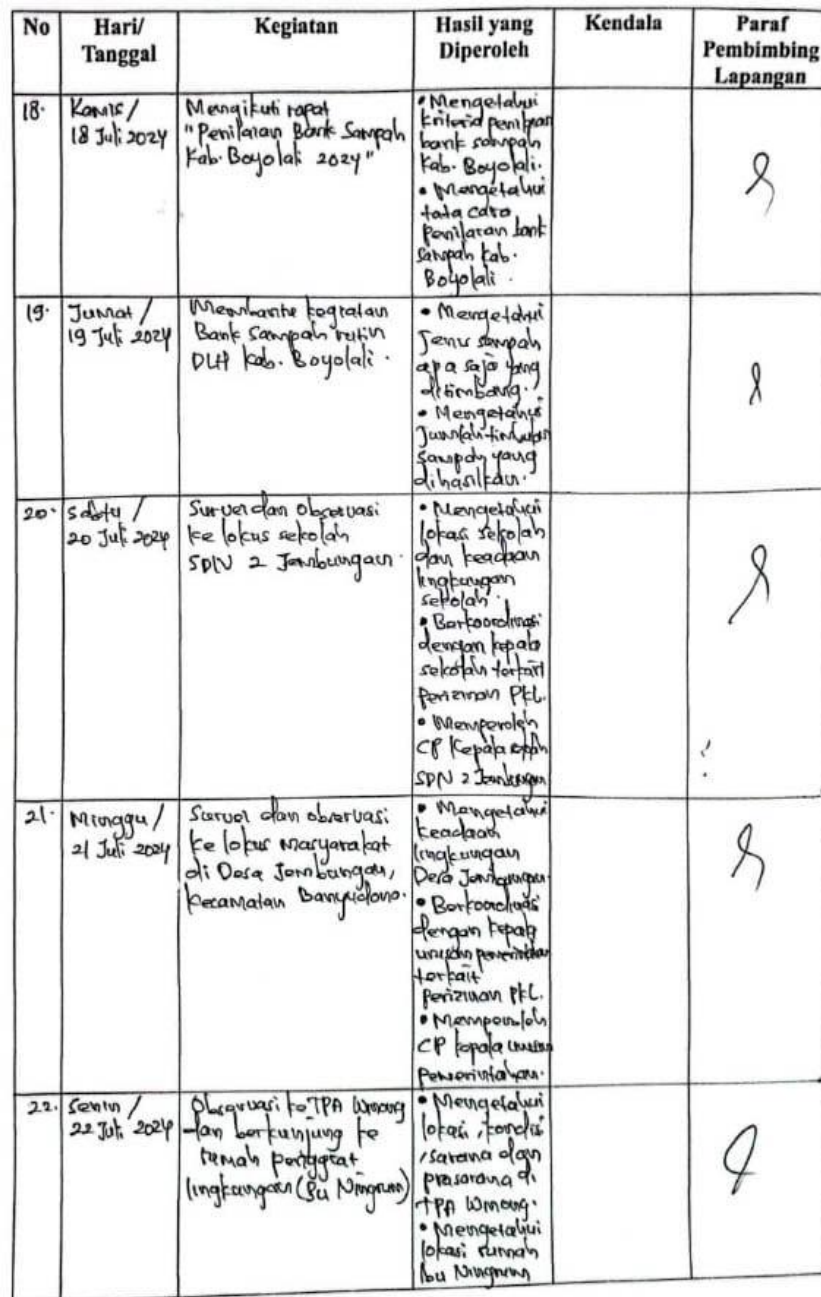 No
Hari/
Tanggal
Kegiatan
Hasil yang
Diperoleh
Kendala
Paraf
Pembimbing
Lapangan
18.
Kamis /
18 Juli 2024
Mengikuti rapat
"Penilaian Bank Sampah
Kab. Boyolali 2024"
• Mengetahui
kriteria penilaian
bank sampah
Kab. Boyolali.
• Mengetahui
tata cara
Penilaian bank
sampah kab.
Boyolali.
19.
Jumat /
19 Juli 2024
Membantu kegiatan
Bank Sampah rutin
DLH Kab. Boyolali.
• Mengetahui
Jenis sampah
apa saja yang
ditimbang.
• Mengetahui
Jumlah timbulan
Sampah yang
dihasilkan.
20.
Sabtu /
20 Juli 2024
Survei dan observasi
ke lokus sekolah
SDN 2 Jembungan.
• Mengetahui
lokasi sekolah
dan keadaan
lingkungan
sekolah.
• Berkoordinasi
dengan kepala
sekolah terkait
Perizinan PKL.
• Memperoleh
CP Kepala
SDN 2 Jembungan
21.
Minggu /
21 Juli 2024
Survei dan observasi
ke lokus Masyarakat
di Desa Jembungan,
Kecamatan Banyudono.
• Mengetahui
keadaan
lingkungan
Desa Jembungan.
• Berkoordinasi
dengan kepala
urusan pemerintahan
terkait
Perizinan PKL.
• Memperoleh
CP kepala urusan
Pemerintahan.
22.
Senin /
22 Juli 2024
Observasi ke TPA Winong
dan berkunjung ke
rumah penggiat
lingkungan (Bu Ningrum)
• Mengetahui
lokasi, kondisi
, sarana dan
prasarana di
TPA Winong.
• Mengetahui
lokasi rumah
Ibu Ningrum